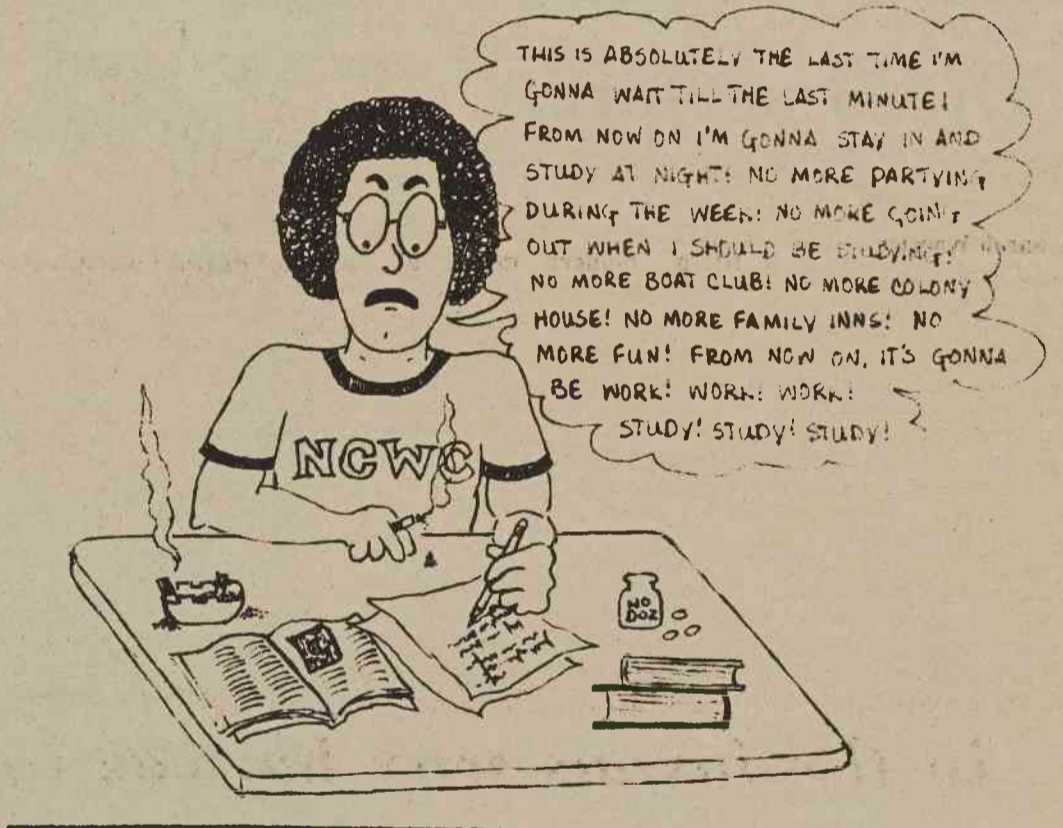 THIS IS ABSOLUTELY THE LAST TIME I'M
GONNA WAIT TILL THE LAST MINUTE!
FROM NOW ON I'M GONNA STAY IN AND
STUDY AT NIGHT! NO MORE PARTYING
DURING THE WEEK! NO MORE GOING
OUT WHEN I SHOULD BE STUDYING!
NO MORE BOAT CLUB! NO MORE COLONY
HOUSE! NO MORE FAMILY INNS! NO
MORE FUN! FROM NOW ON, IT'S GONNA
BE WORK! WORK! WORK!
STUDY! STUDY! STUDY!
NCWC
NO
DOZ